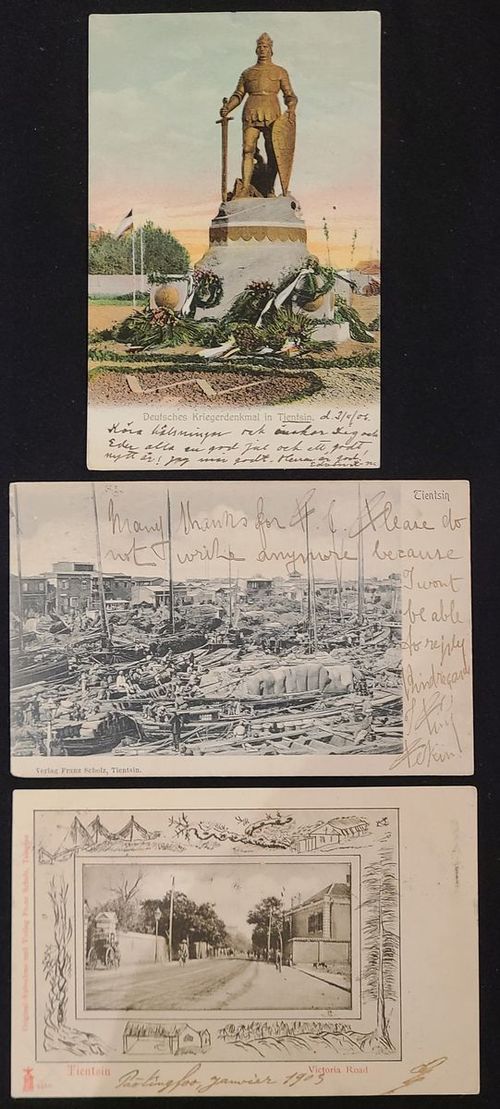 Deutsches Kriegerdenkmal in Tientsin.
Kära hälsningar och önskar Dig och
Eder alla en god jul och ett godt
nytt år! Jag mår godt. Herren är god!
Tientsin
Many thanks for P. C. Please do
not write anymore because
I wont
be able
to reply
Kind regards
Pekin
Verlag Franz Scholz, Tientsin.
Original-Aufnahme und Verlag Franz Scholz, Tientsin
Tientsin
Victoria Road
Paotingfoo, janvier 1903